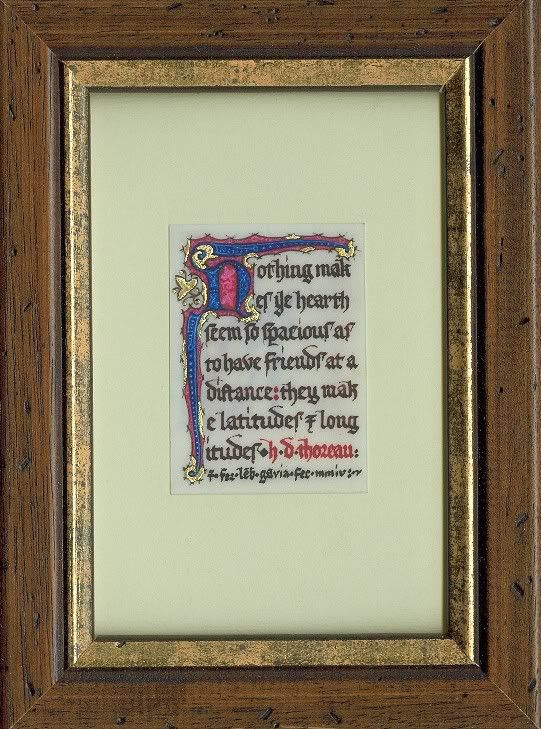 Nothing mak
es ye hearth
seem so spacious as
to have friends at a
distance: they mak
e latitudes & long
itudes • h·d·thoreau:
gavia·fec·mmiv